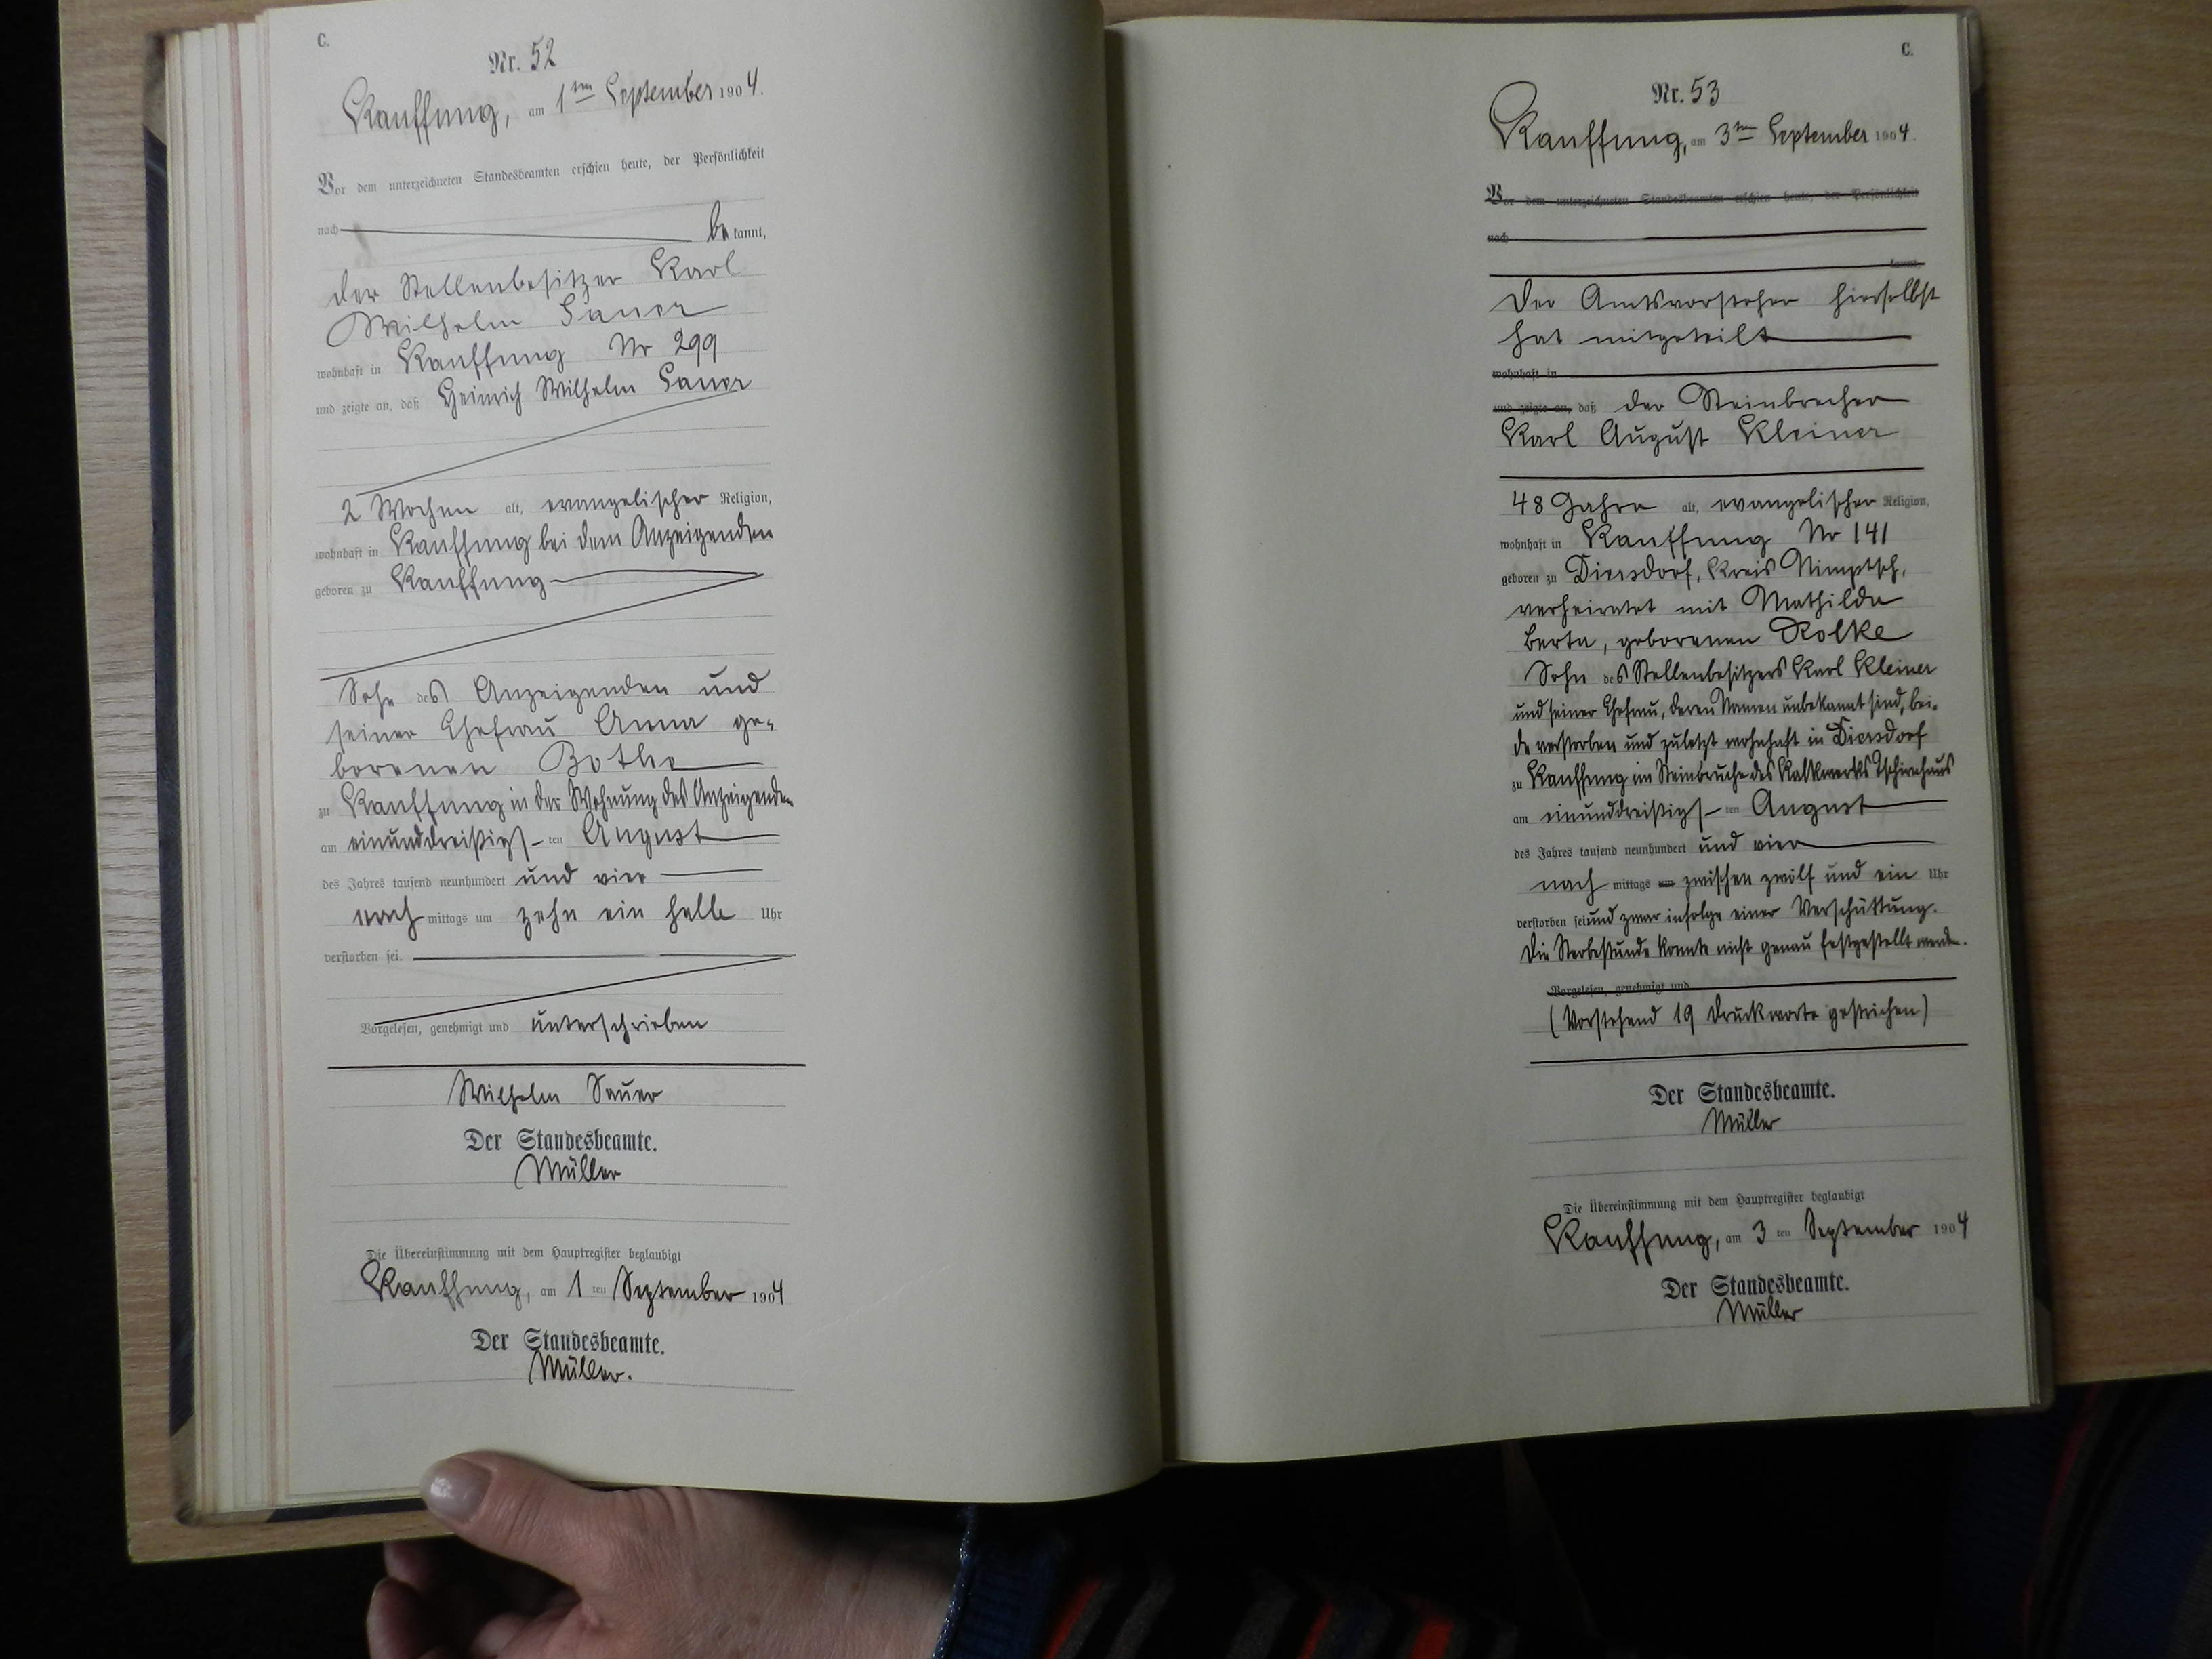 C.
Nr. 52
Kauffung, am 1ten September 1904.
Vor dem unterzeichneten Standesbeamten erschien heute, der Persönlichkeit
nach be kannt,
der Stellenbesitzer Karl
Wilhelm Sauer
wohnhaft in Kauffung Nr 299
und zeigte an, daß Heinrich Wilhelm Sauer
2 Wochen alt, evangelischer Religion,
wohnhaft in Kauffung bei dem Anzeigenden
geboren zu Kauffung
Sohn des Anzeigenden und
seiner Ehefrau Anna ge-
borenen Bothe
zu Kauffung in der Wohnung des Anzeigenden
am einunddreißigsten August
des Jahres tausend neunhundert und vier
nach mittags um zehn ein halb Uhr
verstorben sei.
Vorgelesen, genehmigt und unterschrieben
Wilhelm Sauer
Der Standesbeamte.
Müller
Die Übereinstimmung mit dem Hauptregister beglaubigt
Kauffung, am 1 ten September 1904
Der Standesbeamte.
Müller.
C.
Nr. 53
Kauffung, am 3ten September 1904.
Vor dem unterzeichneten Standesbeamten erschien heute, der Persönlichkeit
nach
kannt,
Der Amtsvorsteher hierselbst
hat mitgeteilt
wohnhaft in
und zeigte an, daß der Steinbrecher
Karl August Kleiner
48 Jahre alt, evangelischer Religion,
wohnhaft in Kauffung Nr 141
geboren zu Diersdorf, Kreis Nimptsch,
verheiratet mit Mathilde
Berta, geborenen Rolke
Sohn des Stellenbesitzers Karl Kleiner
und seiner Ehefrau, deren Namen unbekannt sind, bei-
de verstorben und zuletzt wohnhaft in Diersdorf
zu Kauffung im Steinbruche des Kalkwerks Tschirnhaus
am einunddreißigsten August
des Jahres tausend neunhundert und vier
nach mittags um zwischen zwölf und ein Uhr
verstorben sei und zwar infolge einer Verschüttung.
Die Sterbestunde konnte nicht genau festgestellt werden.
Vorgelesen, genehmigt und
(Vorstehend 19 Druckworte gestrichen)
Der Standesbeamte.
Müller
Die Übereinstimmung mit dem Hauptregister beglaubigt
Kauffung, am 3 ten September 1904
Der Standesbeamte.
Müller